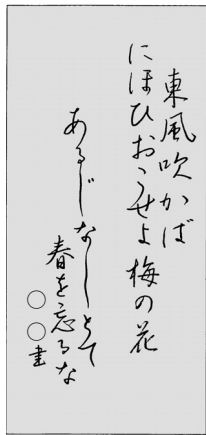 東風吹かば
にほひおこせよ梅の花
あるじなしとて
春を忘るな
○○書